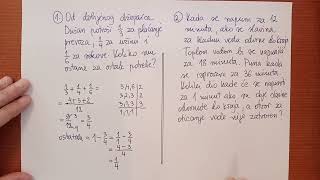 ① Od dobijenog džeparca,
Dušan potroši 1/3 za plaćanje
prevoza, 1/4 za užinu i
1/6 za sokove. Koliko mu
ostane za ostale potrebe?
1/3 + 1/4 + 1/6 =
= (4+3+2)/12 =
= 9/12 = 3/4
3,4,6 | 2
3,2,3 | 2
3,1,3 | 3
1,1,1
ostatak = 1 - 3/4 = 1/1 - 3/4
= (4-3)/4
= 1/4
② Kada se napuni za 12
minuta, ako se slavina
za hladnu vodu odvrne do kraja.
Toplom vodom bi se napunila
za 18 minuta. Puna kada
se isprazni za 36 minuta.
Koliki dio kade će se napuniti
za 1 minut ako se obje slavine
odvrnute do kraja, a otvor za
oticanje vode nije zatvoren?